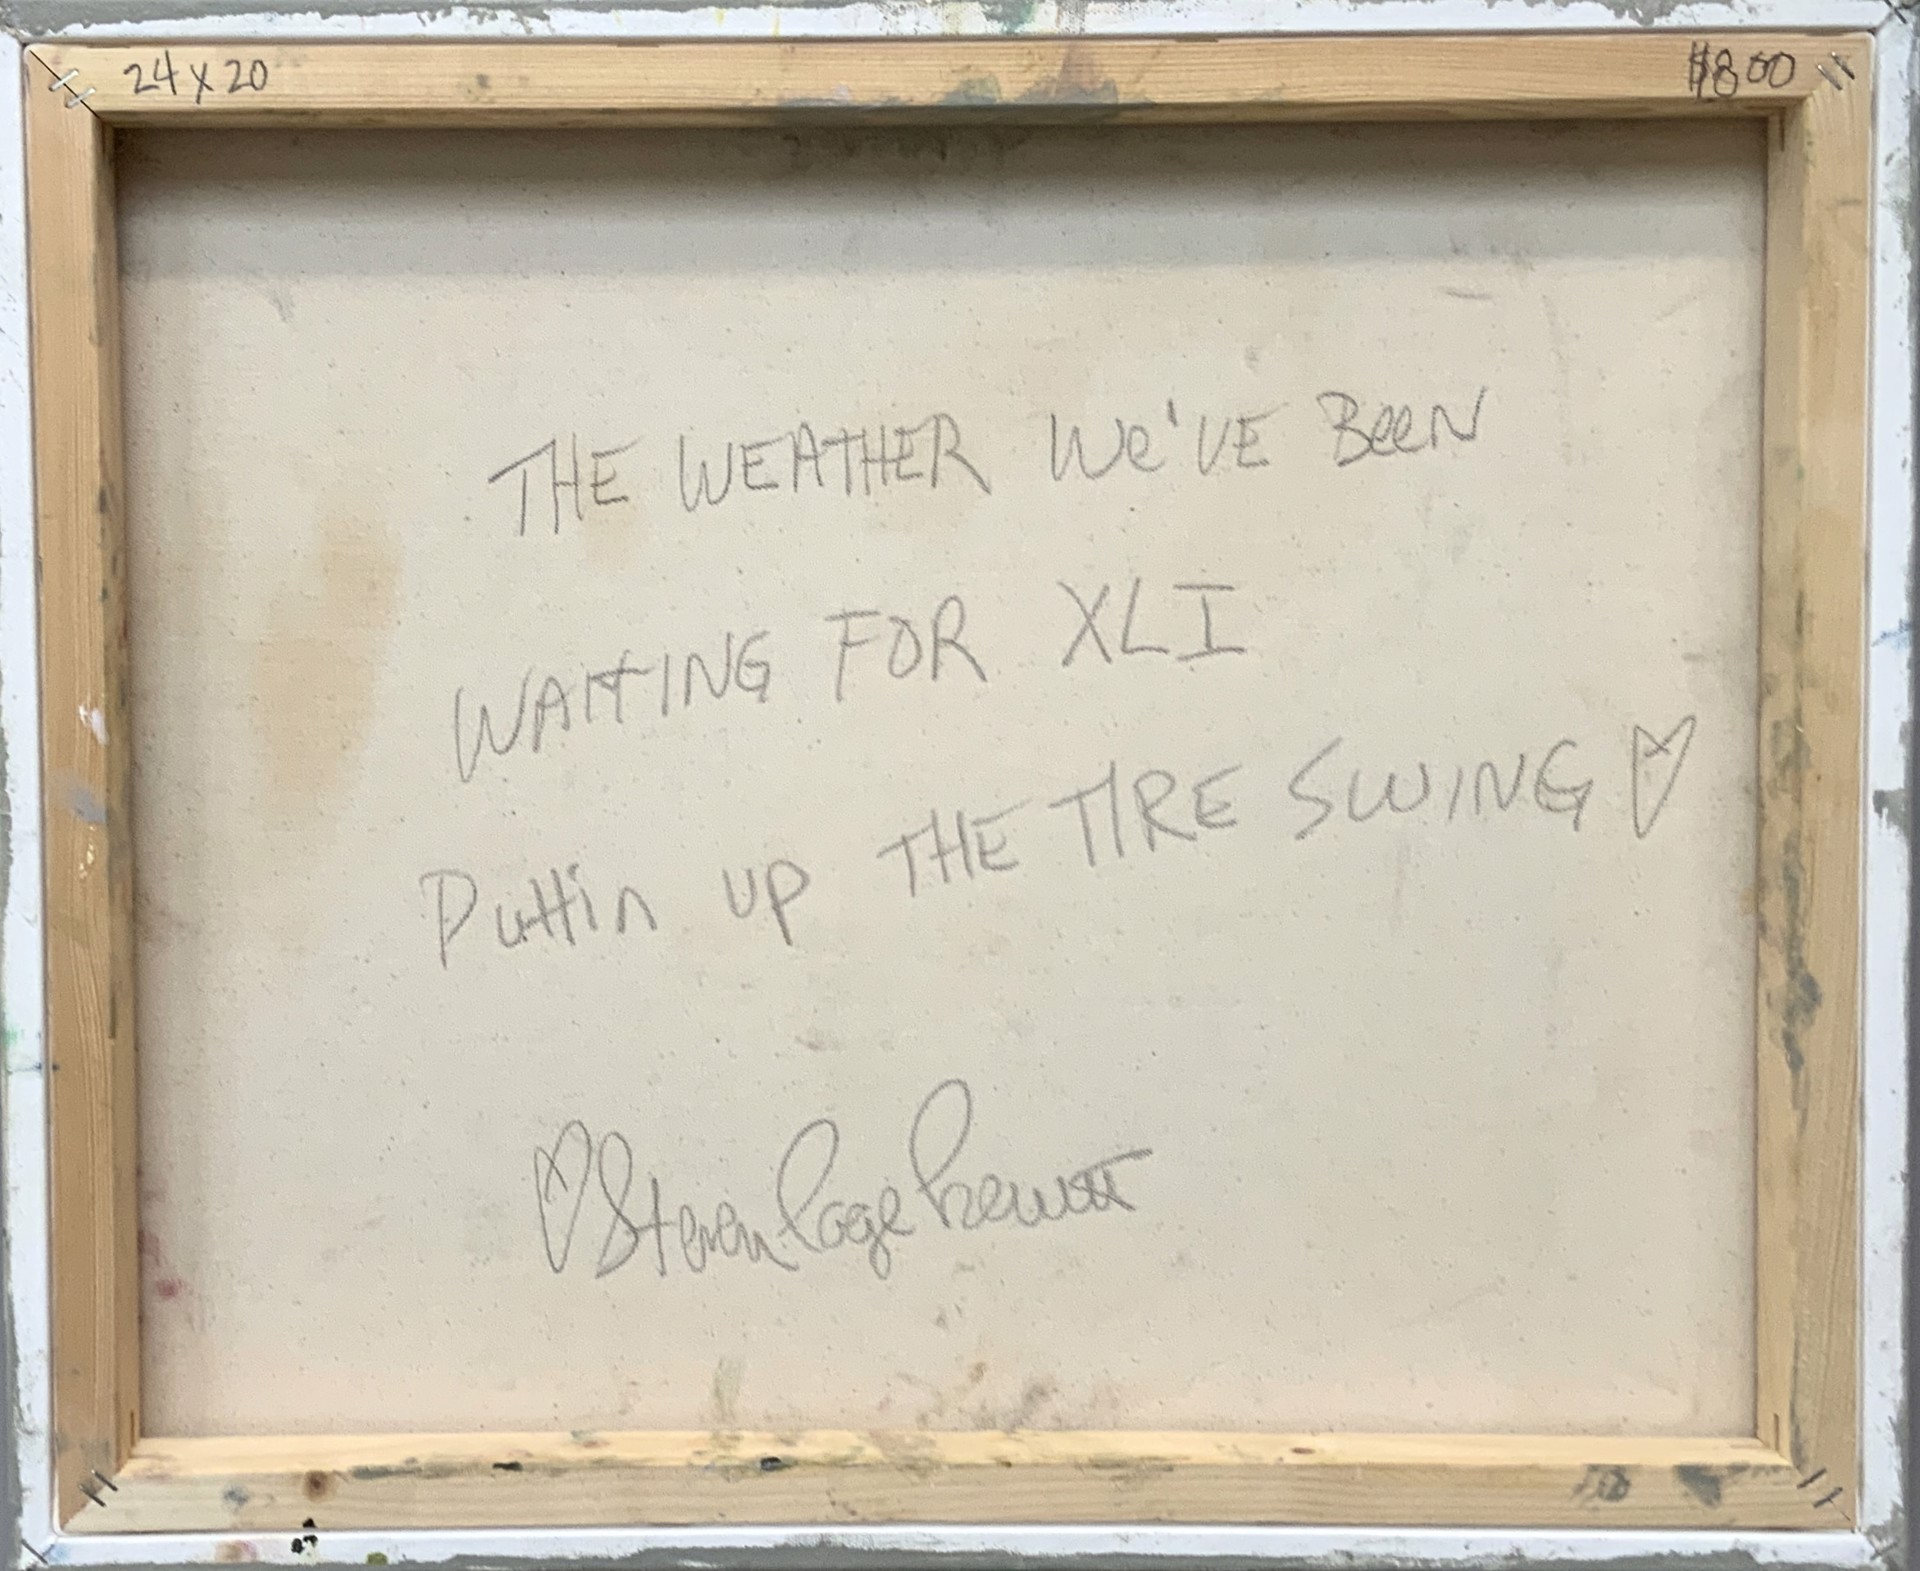 24 x 20
$800
THE WEATHER We'VE BeeN
WAITING FOR XLI
Puttin up THE TIRE SWING ♡
♡ Steven Page Prewitt